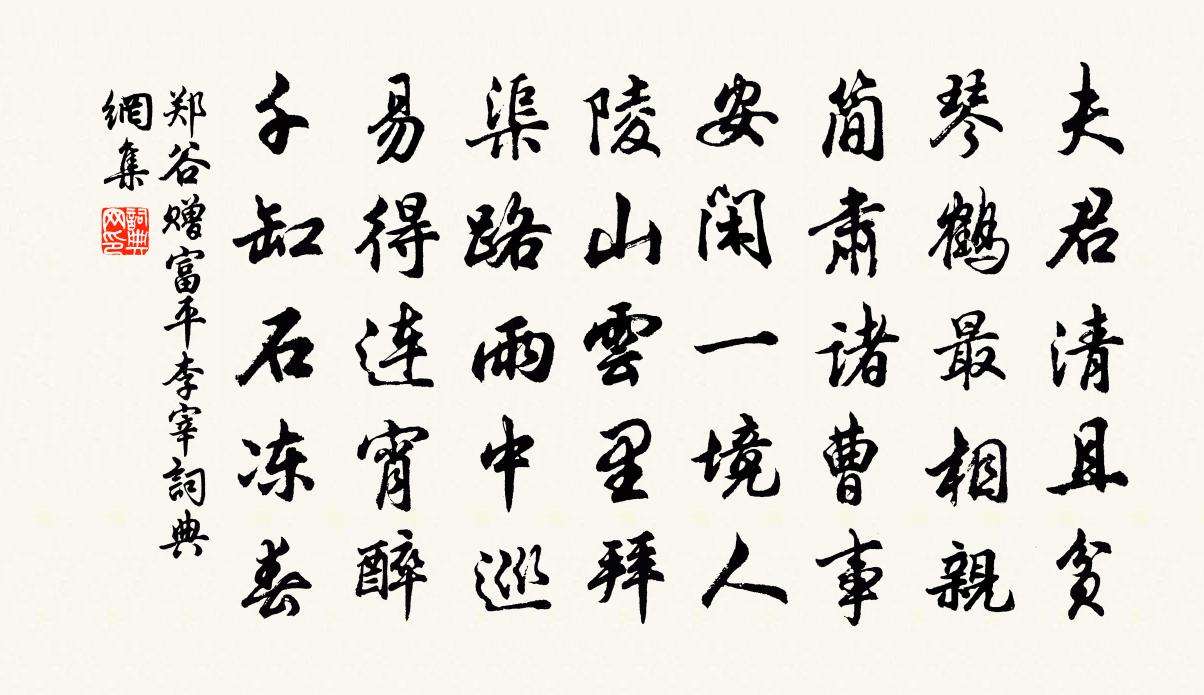 夫君清且貧
琴鶴最相親
簡肅诸曹事
安闲一境人
陵山雲里拜
渠路雨中巡
易得连宵醉
千缸石冻春
郑谷赠富平李宰詞典
網集
詞典
网印